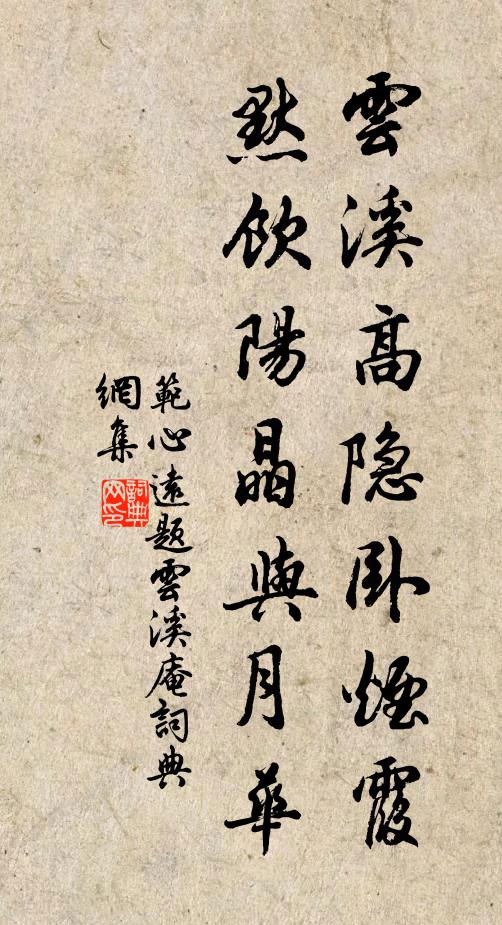 雲溪高隐卧煙霞
默飲陽晶與月華
範心遠題雲溪庵詞典
網集
詞典
网印